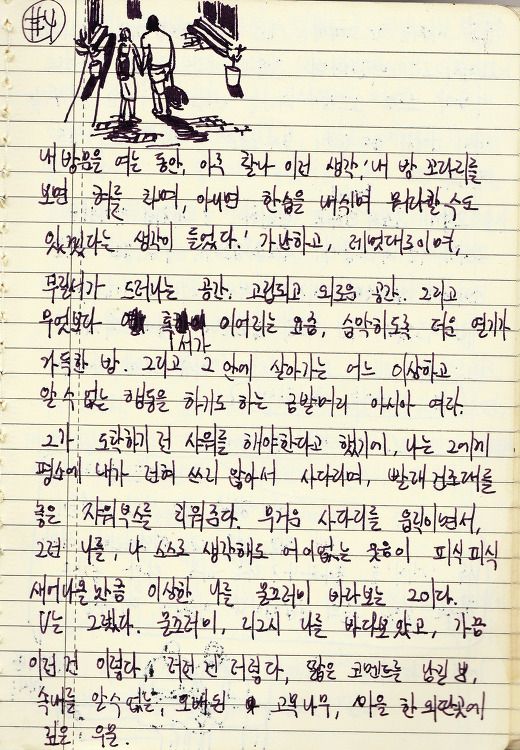 #4
내 방문을 여는 동안, 아주 잠나 이런 생각! 내 방 꼬라리를
보면 혀를 차며, 아니면 한숨을 내쉬며 뭐라할 수도
있겠다는 생각이 들었다.' 가난하고, 제멋대로이며,
무질서가 드러나는 공간. 고립되고 외로운 공간. 그리고
무엇보다 이어리는 요즘, 습막하도록 더운 열기가
서가
가득한 방. 그리고 그 안에 살아가는 어느 이상하고
알 수 없는 행동을 하기도 하는 금발머리 아시아 여자.
그가 도착하기 전 샤워를 해야한다고 했기에, 나는 그에게
평소에 내가 전혀 쓰지 않아서 사다리며, 빨래 건조대를
놓은 샤워부스를 치워준다. 무거운 사다리를 움직이면서,
그런 나를, 나 스스로 생각해도 어이없는 웃음이 피식피식
새어나올 만큼 이상한 나를 물끄러미 바라보는 그이다.
V는 그랬다. 물끄러미, 지그시 나를 바라보았고, 가끔
이런 건 이렇다, 저런 건 저렇다, 짧은 코멘트를 남길 뿐,
속내를 알 수 없는, 오래된 고목나무, 마을 한 외딴곳에
깊은 우물.